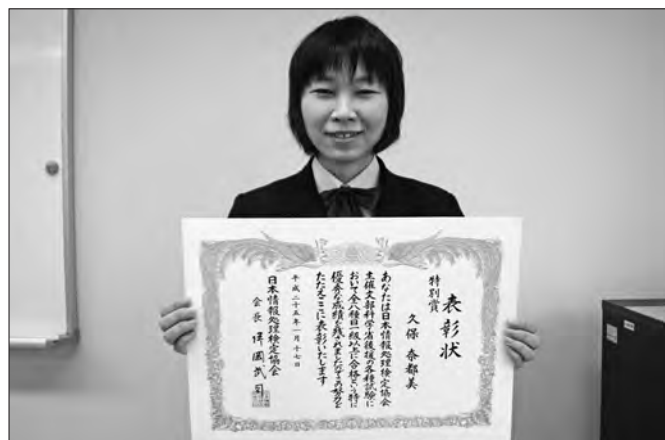 表彰状
特別賞
久保 奈都美
あなたは日本情報処理検定協会
主催文部科学省後援の各種試験に
おいて全八種目一級以上に合格という特に
優秀な成績を残されましたその努力を
たたえここに表彰いたします
平成二十五年一月十七日
日本情報処理検定協会
会長